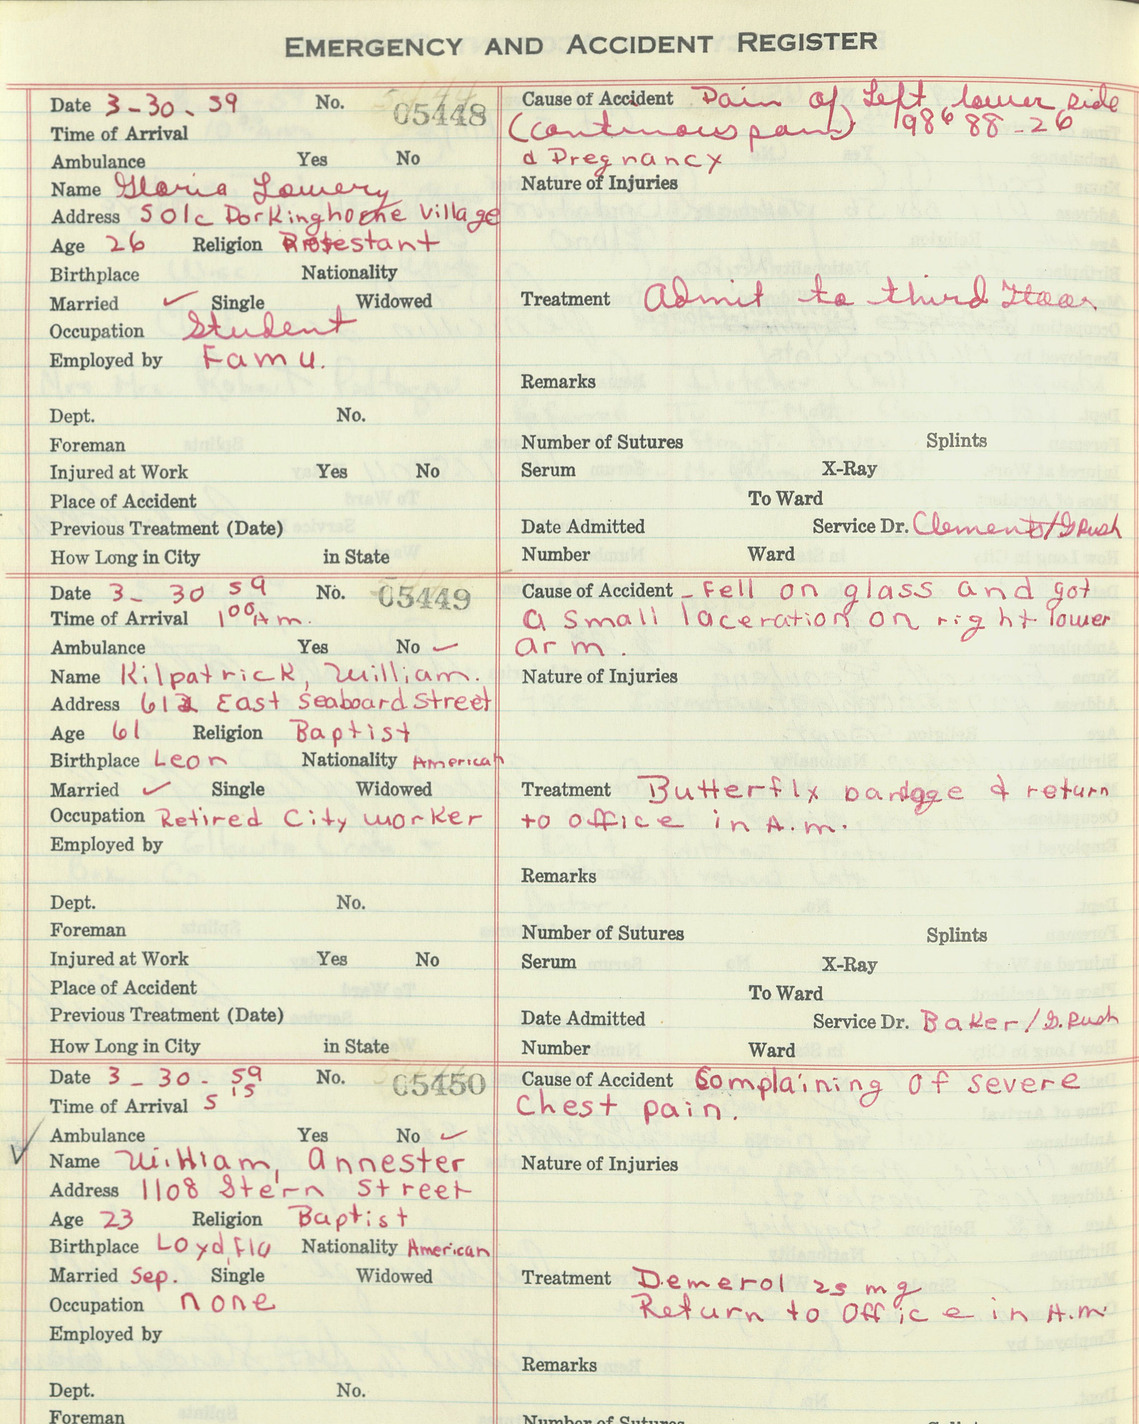 EMERGENCY AND ACCIDENT REGISTER
Date 3-30-59 No. 05448
Time of Arrival
Ambulance Yes No
Name Gloria Lowery
Address 501c Dorkinghorne Village
Age 26 Religion Protestant
Birthplace Nationality
Married ✓ Single Widowed
Occupation Student
Employed by Famu.
Dept. No.
Foreman
Injured at Work Yes No
Place of Accident
Previous Treatment (Date)
How Long in City in State
Cause of Accident Pain of Left lower side
(continous pain) 98⁶ 88-26
Pregnancy
Nature of Injuries
Treatment Admit to third floor.
Remarks
Number of Sutures Splints
Serum X-Ray
To Ward
Date Admitted Service Dr. Clements/G Rush
Number Ward
Date 3-30 59 No. 05449
Time of Arrival 1⁰⁰ Am.
Ambulance Yes No ✓
Name Kilpatrick, William.
Address 612 East Seaboard Street
Age 61 Religion Baptist
Birthplace Leon Nationality American
Married ✓ Single Widowed
Occupation Retired City worker
Employed by
Dept. No.
Foreman
Injured at Work Yes No
Place of Accident
Previous Treatment (Date)
How Long in City in State
Cause of Accident - Fell on glass and got
a small laceration on right lower
arm.
Nature of Injuries
Treatment Butterfly bandgge & return
to office in A.m.
Remarks
Number of Sutures Splints
Serum X-Ray
To Ward
Date Admitted Service Dr. Baker/G. Rush
Number Ward
Date 3-30-59 No. 05450
Time of Arrival 5¹⁵
Ambulance Yes No ✓
Name William, Annester
Address 1108 Stern Street
Age 23 Religion Baptist
Birthplace Loyd, Fla Nationality American
Married Sep. Single Widowed
Occupation none
Employed by
Dept. No.
Foreman
Cause of Accident Complaining of severe
Chest pain.
Nature of Injuries
Treatment Demerol 25 mg
Return to Office in A.m.
Remarks
Number of Sutures Splints